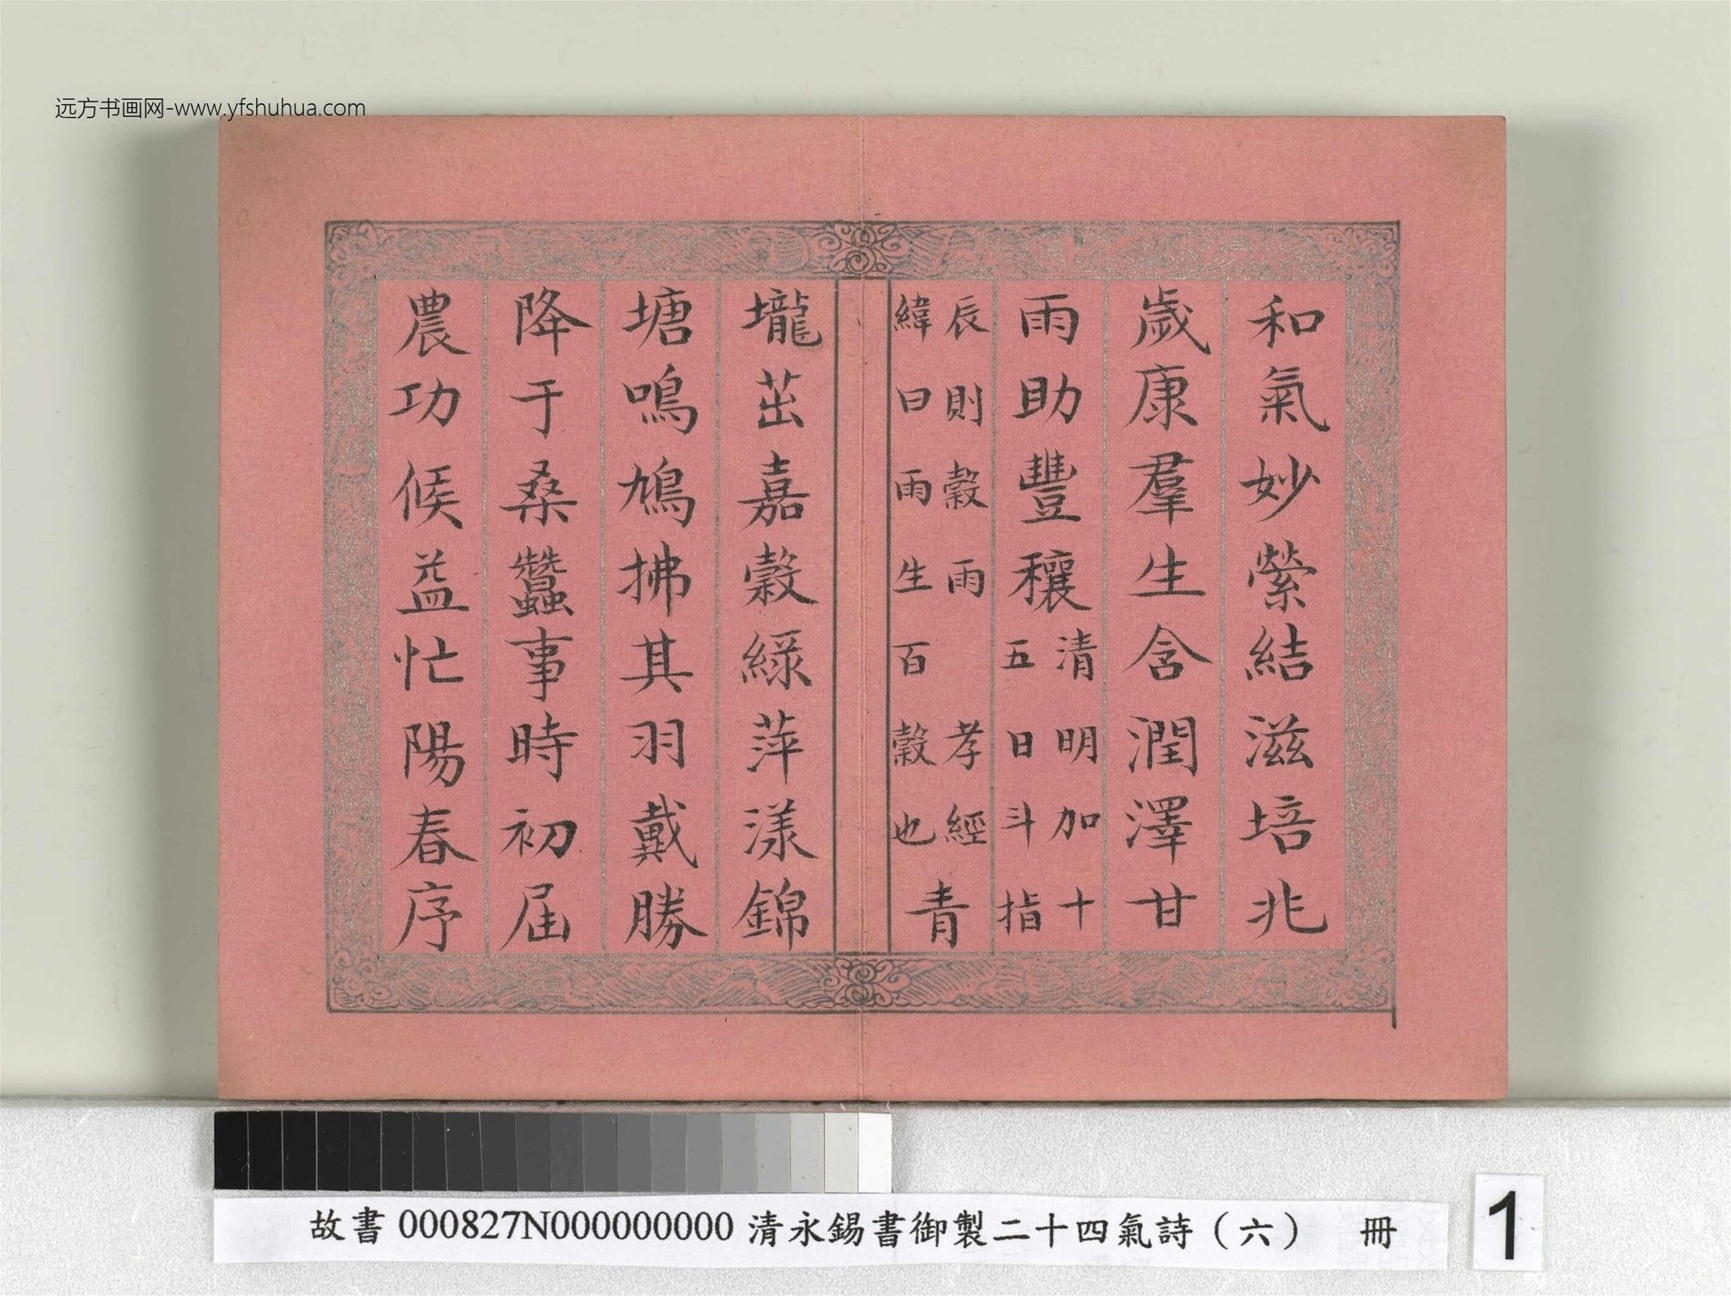 远方书画网-www.yfshuhua.com
和氣妙縈結滋培兆
歲康羣生含潤澤甘
雨助豐穰清明加十五日斗指
辰則穀雨 孝經緯曰雨生百穀也青
壠茁嘉穀綠萍漾錦
塘鳴鳩拂其羽戴勝
降于桑蠶事時初屆
農功候益忙陽春序
故書 000827N000000000 清永錫書御製二十四氣詩（六） 冊
1